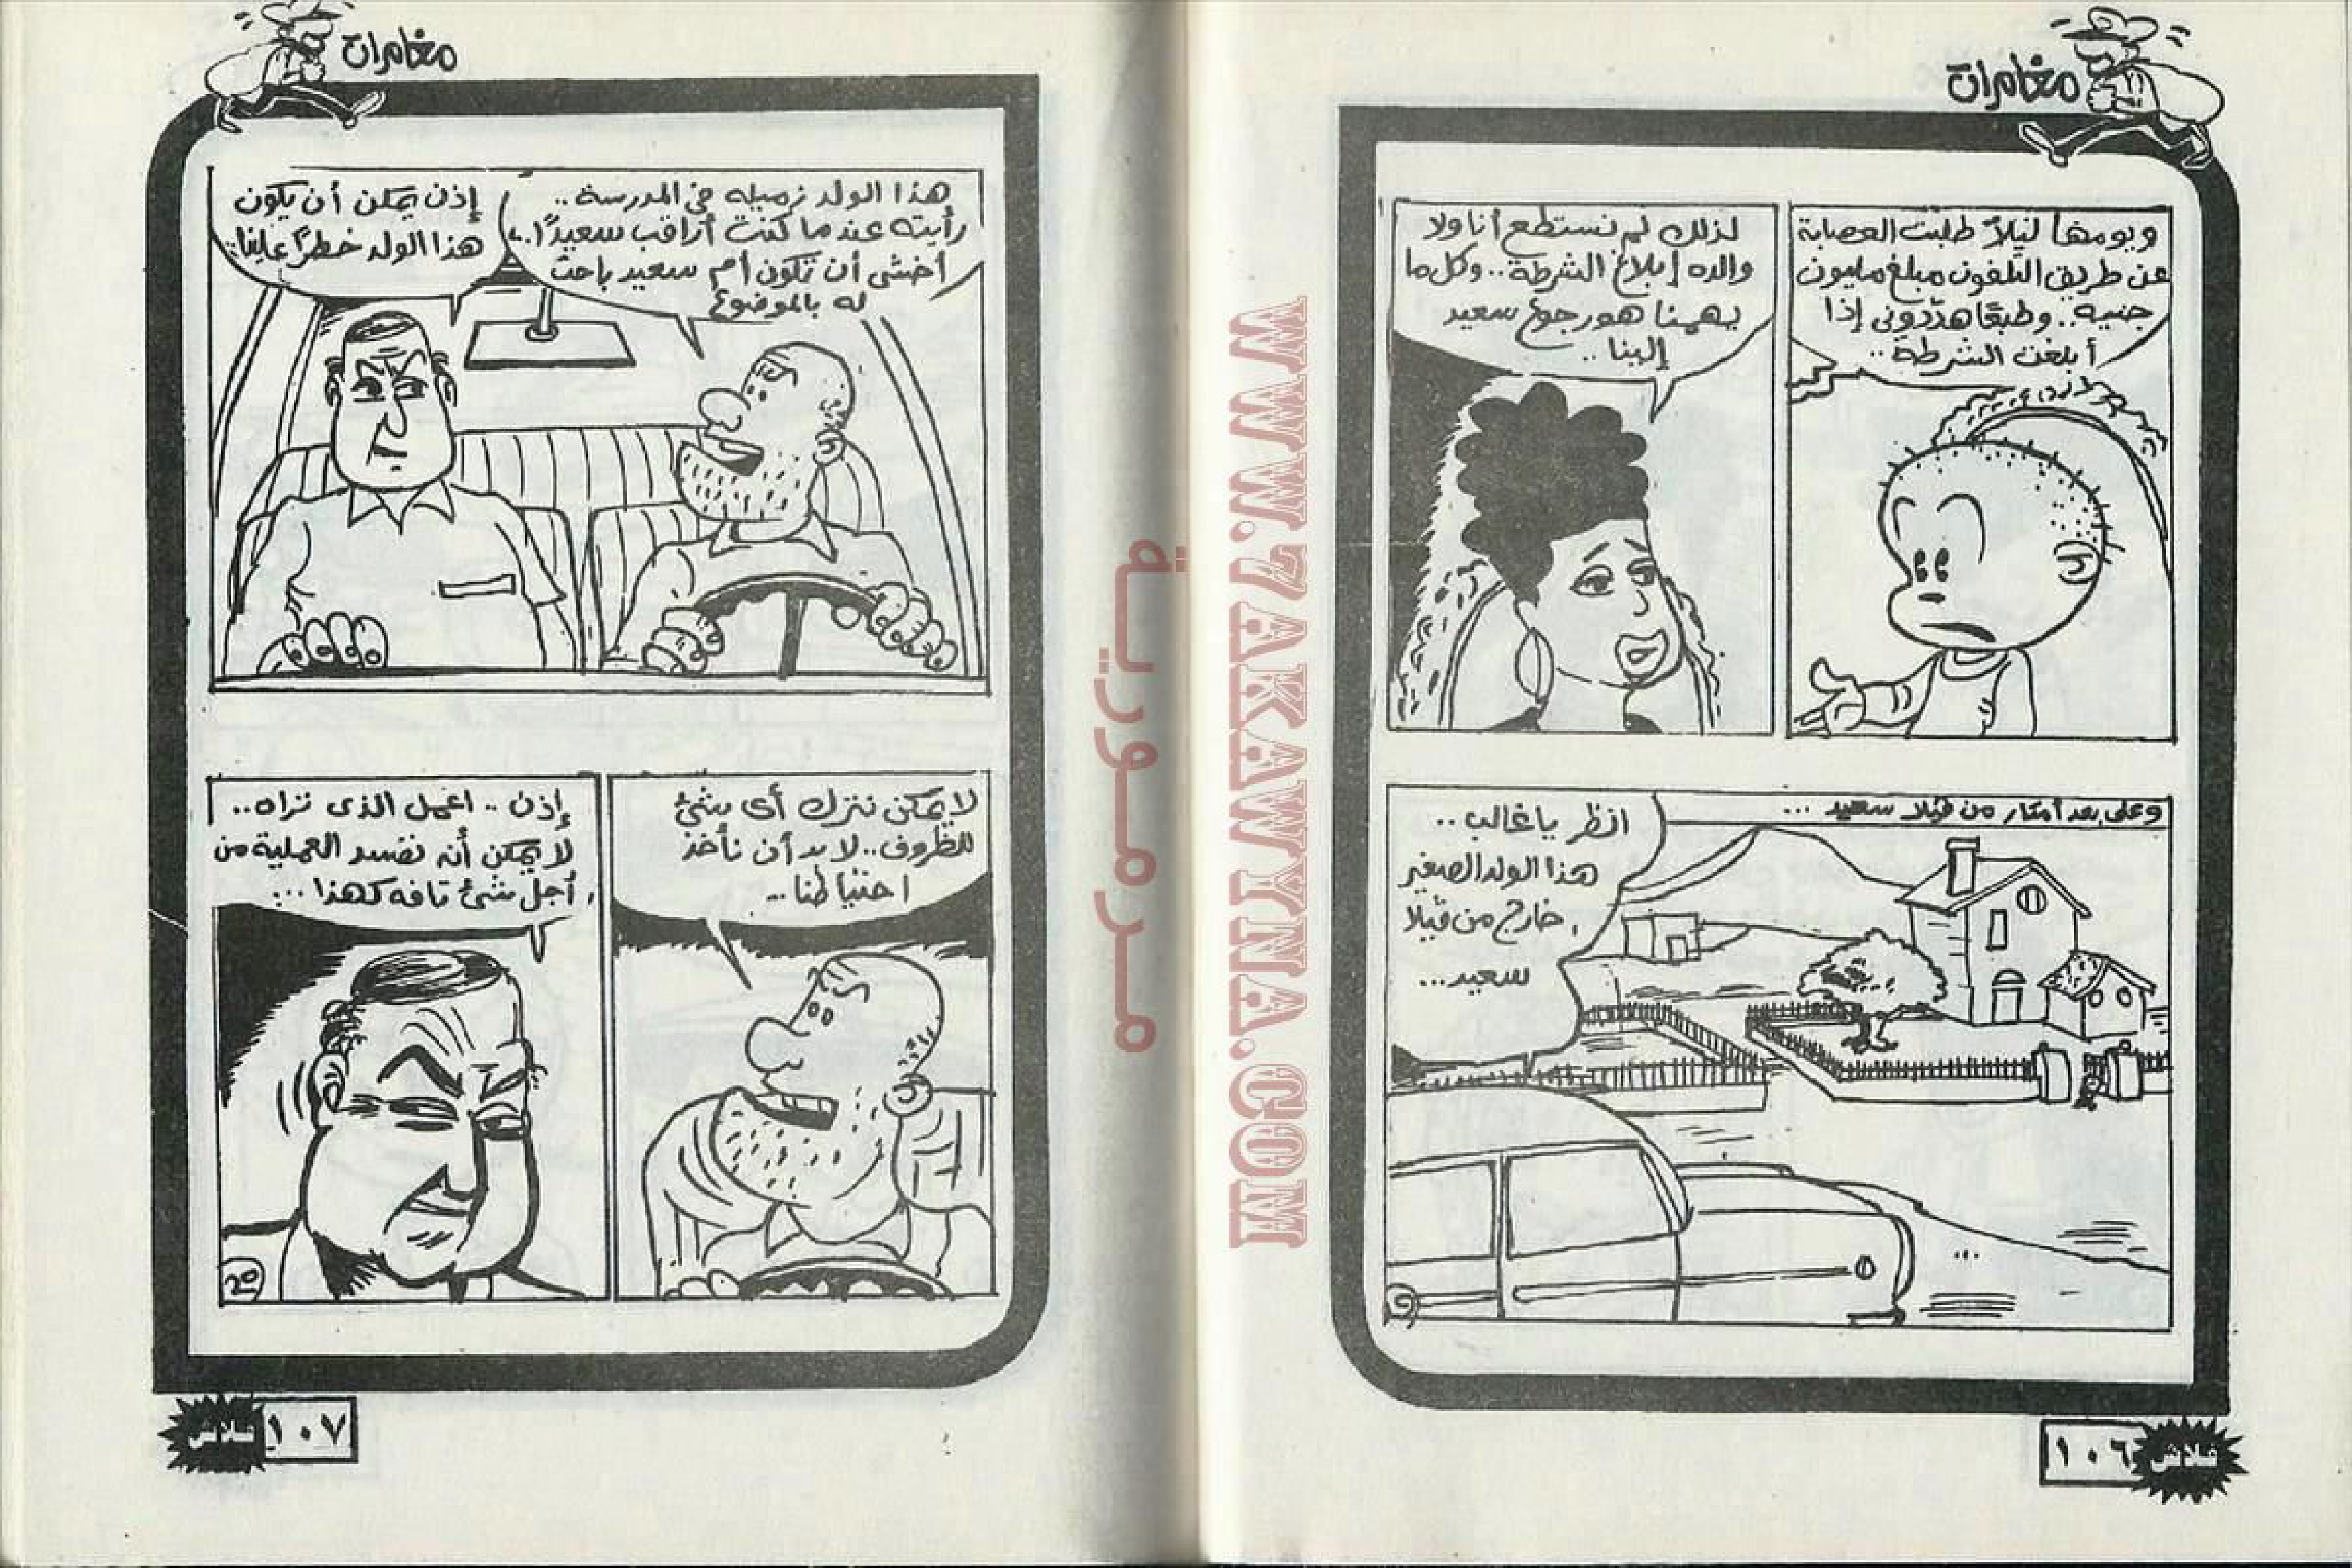 مغامرات
ويومها ليلاً طلبت العصابة
عن طريق التلفون مبلغ مليون
جنيه.. وطبعًا هدّدونى إذا
أبلغت الشرطة..
لذلك لم نستطع أنا ولا
والده إبلاغ الشرطة.. وكل ما
يهمنا هو رجوع سعيد
إلينا..
وعلى بعد أمتار من فيلا سعيد ...
انظر يا غالب..
هذا الولد الصغير
خارج من فيلا
سعيد...
١٠٦
فلاش
مغامرات
هذا الولد زميله فى المدرسة..
رأيته عندما كنت أراقب سعيدًا..
أخشى أن تكون أم سعيد باحت
له بالموضوع
إذن يمكن أن يكون
هذا الولد خطرًا علينا..
لا يمكن نترك أى شئ
للظروف.. لا بد أن نأخذ
احتياطنا..
إذن.. اعمل الذى تراه..
لا يمكن أن تفسد العملية من
أجل شئ تافه كهذا...
20
١٠٧
فلاش
مرمورية
WWW.7AKAWYNA.COM